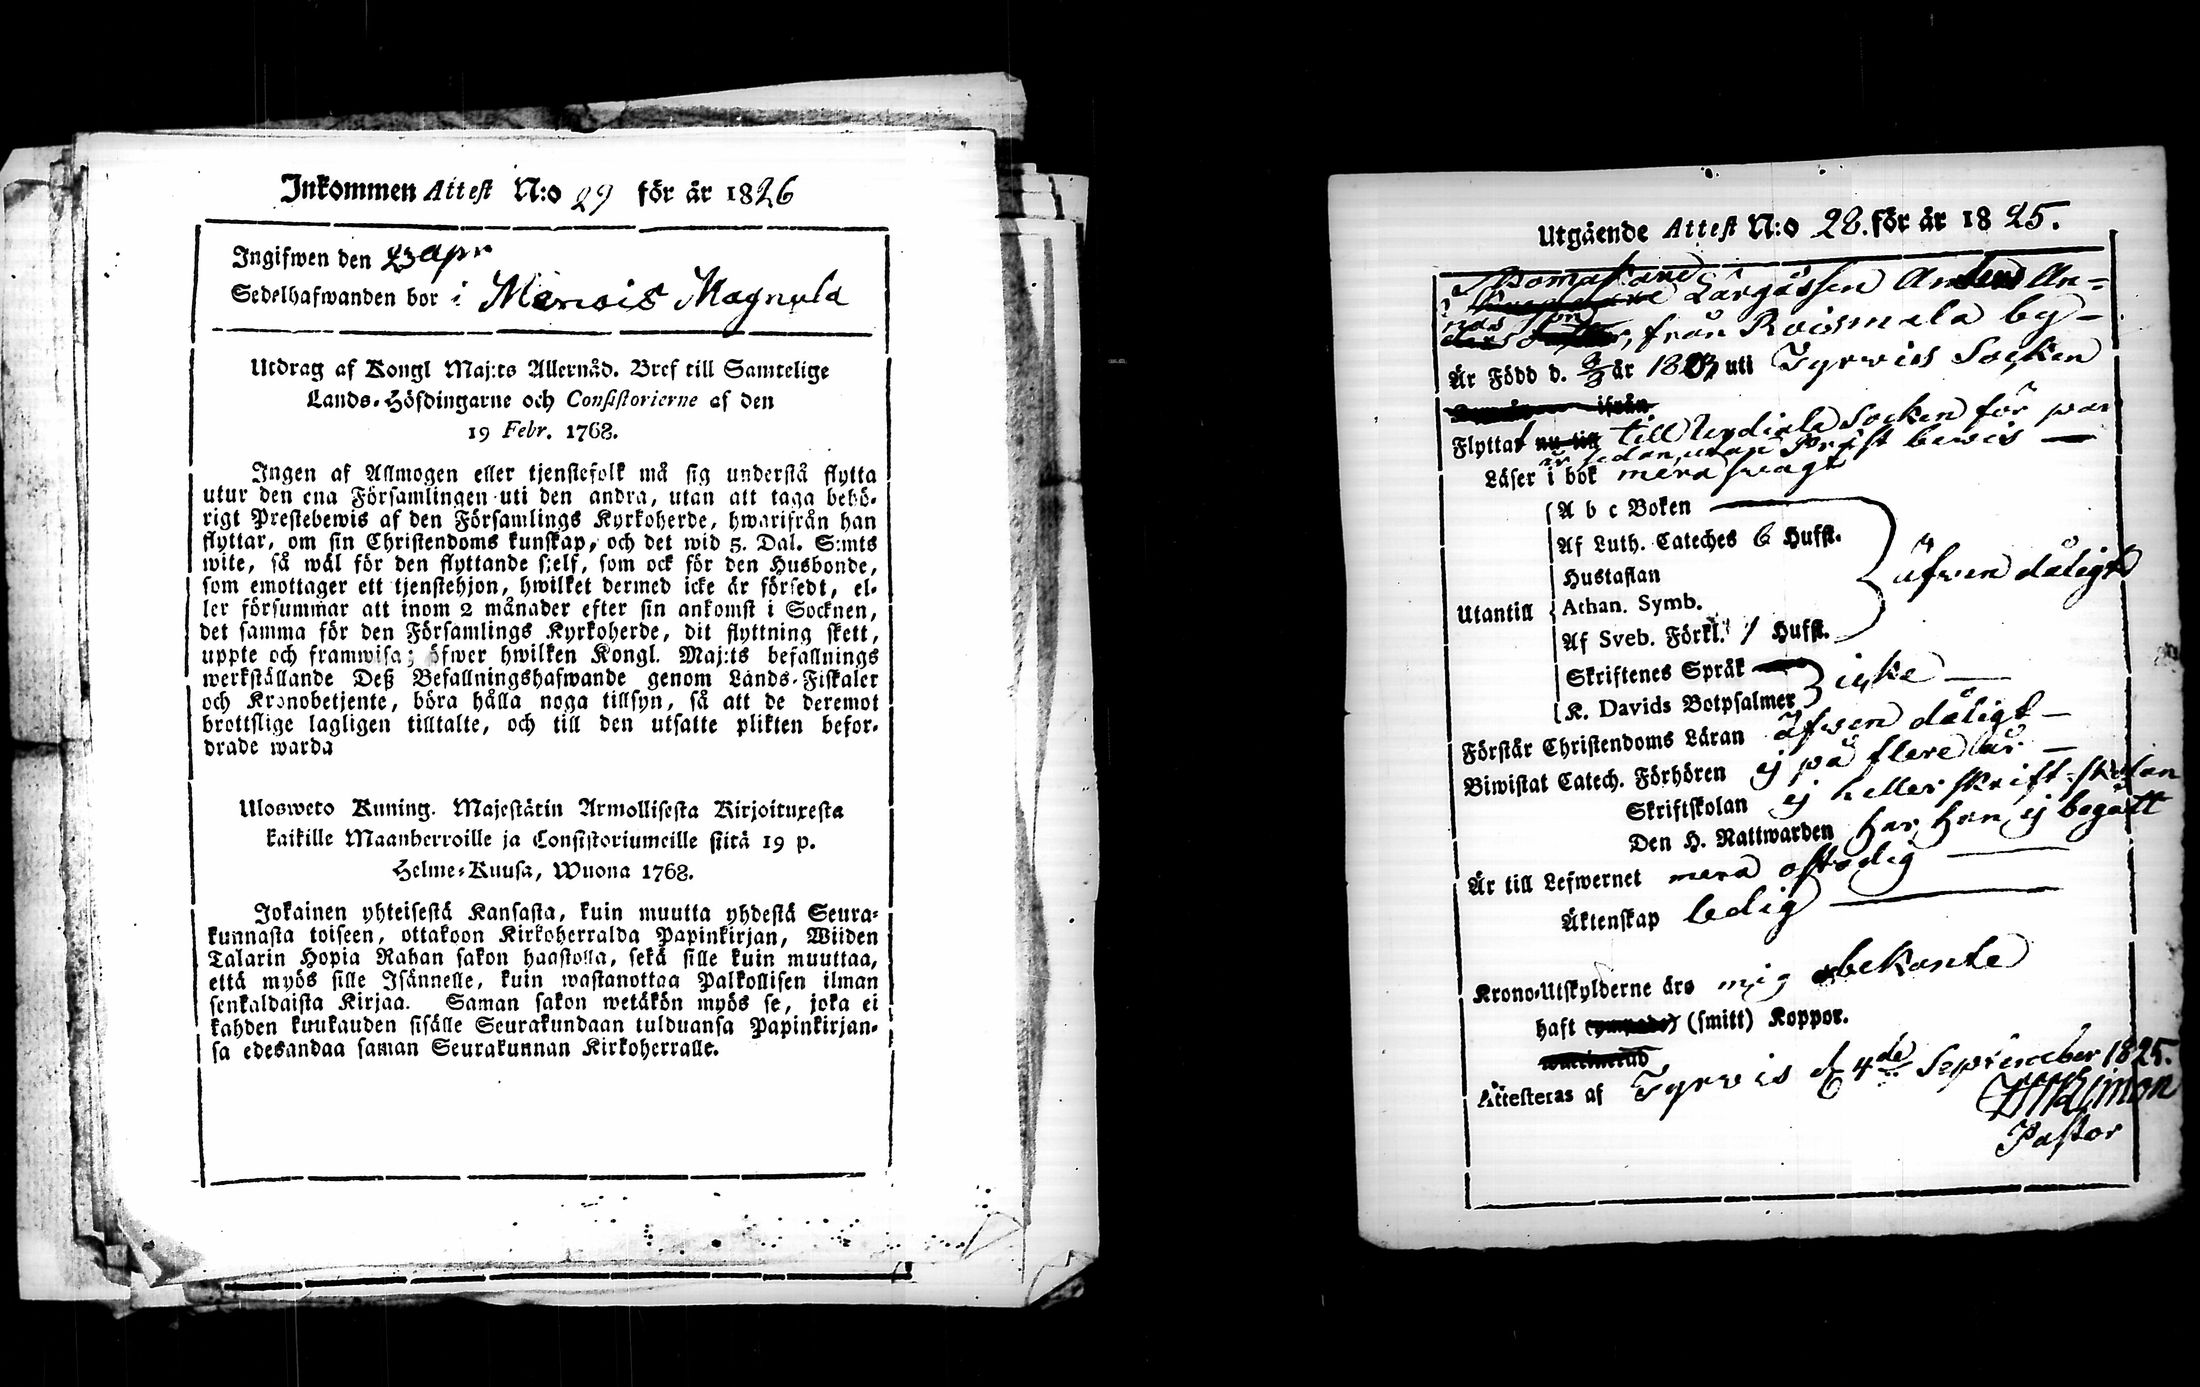 Inkommen Attest N:o 29 för år 1826
Ingifwen den 23 Apr
Sedelhafwanden bor i Menois Magnula
Utdrag af Kongl Maj:ts Allernåd. Bref till Samtelige
Lands-Höfdingarne och Consistorierne af den
19 Febr. 1768.
Ingen af Allmogen eller tjenstefolk må sig understå flytta
utur den ena Församlingen uti den andra, utan att taga behö-
rigt Prestebewis af den Församlings Kyrkoherde, hwarifrån han
flyttar, om sin Christendoms kunskap, och det wid 5. Dal. S:mts
wite, så wäl för den flyttande sielf, som ock för den Husbonde,
som emottager ett tjenstehjon, hwilket dermed icke är försedt, el-
ler försummar att inom 2 månader efter sin ankomst i Socknen,
det samma för den Församlings Kyrkoherde, dit flyttning skett,
uppte och framwisa; öfwer hwilken Kongl. Maj:ts befallnings
werkställande Deß Befallningshafwande genom Lands-Fiskaler
och Kronobetjente, böra hålla noga tillsyn, så att de deremot
brottslige lagligen tilltalte, och till den utsatte plikten befor-
drade warda
Ulosweto Kuning. Majestätin Armollisesta Kirjoituxesta
kaikille Maanherroille ja Consistoriumeille siitä 19 p.
Helme-Kuusa, Wuona 1768.
Jokainen yhteisestä Kansasta, kuin muutta yhdestä Seura-
kunnasta toiseen, ottakoon Kirkoherralda Papinkirjan, Wiiden
Talarin Hopia Rahan sakon haastolla, sekä sille kuin muuttaa,
että myös sille Isännelle, kuin wastanottaa Palkollisen ilman
senkaldaista Kirjaa. Saman sakon wetäkön myös se, joka ei
kahden kuukauden sisälle Seurakundaan tulduansa Papinkirjan-
sa edesandaa saman Seurakunnan Kirkoherralle.
Utgående Attest N:o 28. för år 1825.
Anders An-
son, från Roismala by -
Är Född d. år uti Tyrwis Socken
ifrån
Flyttat nu till till Socken för
är sedan, utan Präst bewis —
Läser i bok mera swagt
A b c Boken
Af Luth. Cateches 6 Hufst.
Hustaflan
Utantill
Athan. Symb.
Af Sveb. Förkl. 1 Hufst.
äfwen dåligt
Skriftenes Språk
K. Davids Botpsalmer
icke —
Förstår Christendoms Läran äfwen dåligt —
Biwistat Catech. Förhören ej på flere år —
Skriftskolan ej heller skrift-skolan
Den H. Nattwarden har han ej begått
Är till Lefwernet mera ostadig
Äktenskap ledig
Krono-Utskylderne äro mig obekante
haft (smitt) Koppor.
Attesteras af Tyrwis d 4de September 1825.
Pastor